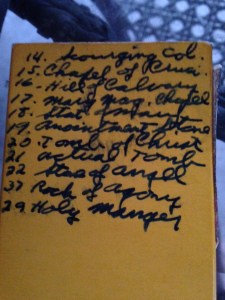 14. Scourging Col.
15. Chapel of
16. Hill of Calvary
17. Mary Mag. Chapel
18. Stat.
19. Anointment Stone
20. Tomb of Christ
21 actual Tomb
22 of angel
Rock of agony
29. Holy Manger